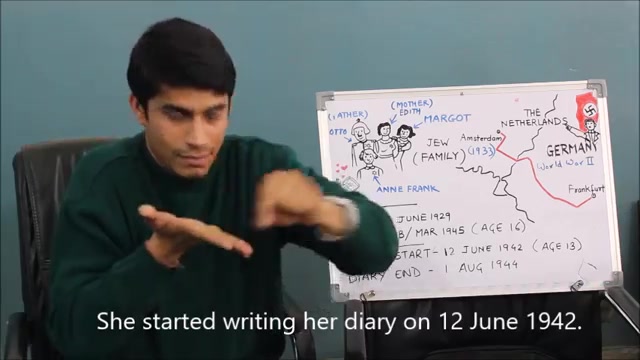 (MOTHER)
EDITH
MARGOT
OTTO
JEW
(FAMILY)
ANNE FRANK
THE
NETHERLANDS
Amsterdam
(1933)
GERMANY
World War II
Frankfurt
JUNE 1929
MAR 1945 (AGE 16)
START - 12 JUNE 1942 (AGE 13)
DIARY END - 1 AUG 1944
She started writing her diary on 12 June 1942.